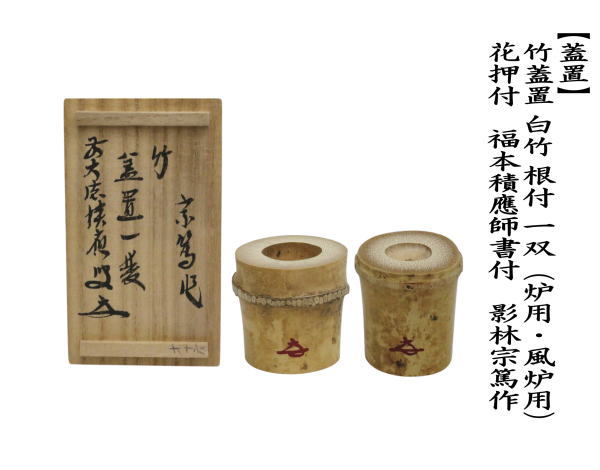 【蓋置】
竹蓋置 白竹 根付 一双（炉用・風炉用）
花押付 福本積應師書付 影林宗篤作
宗篤作
竹
蓋置一双